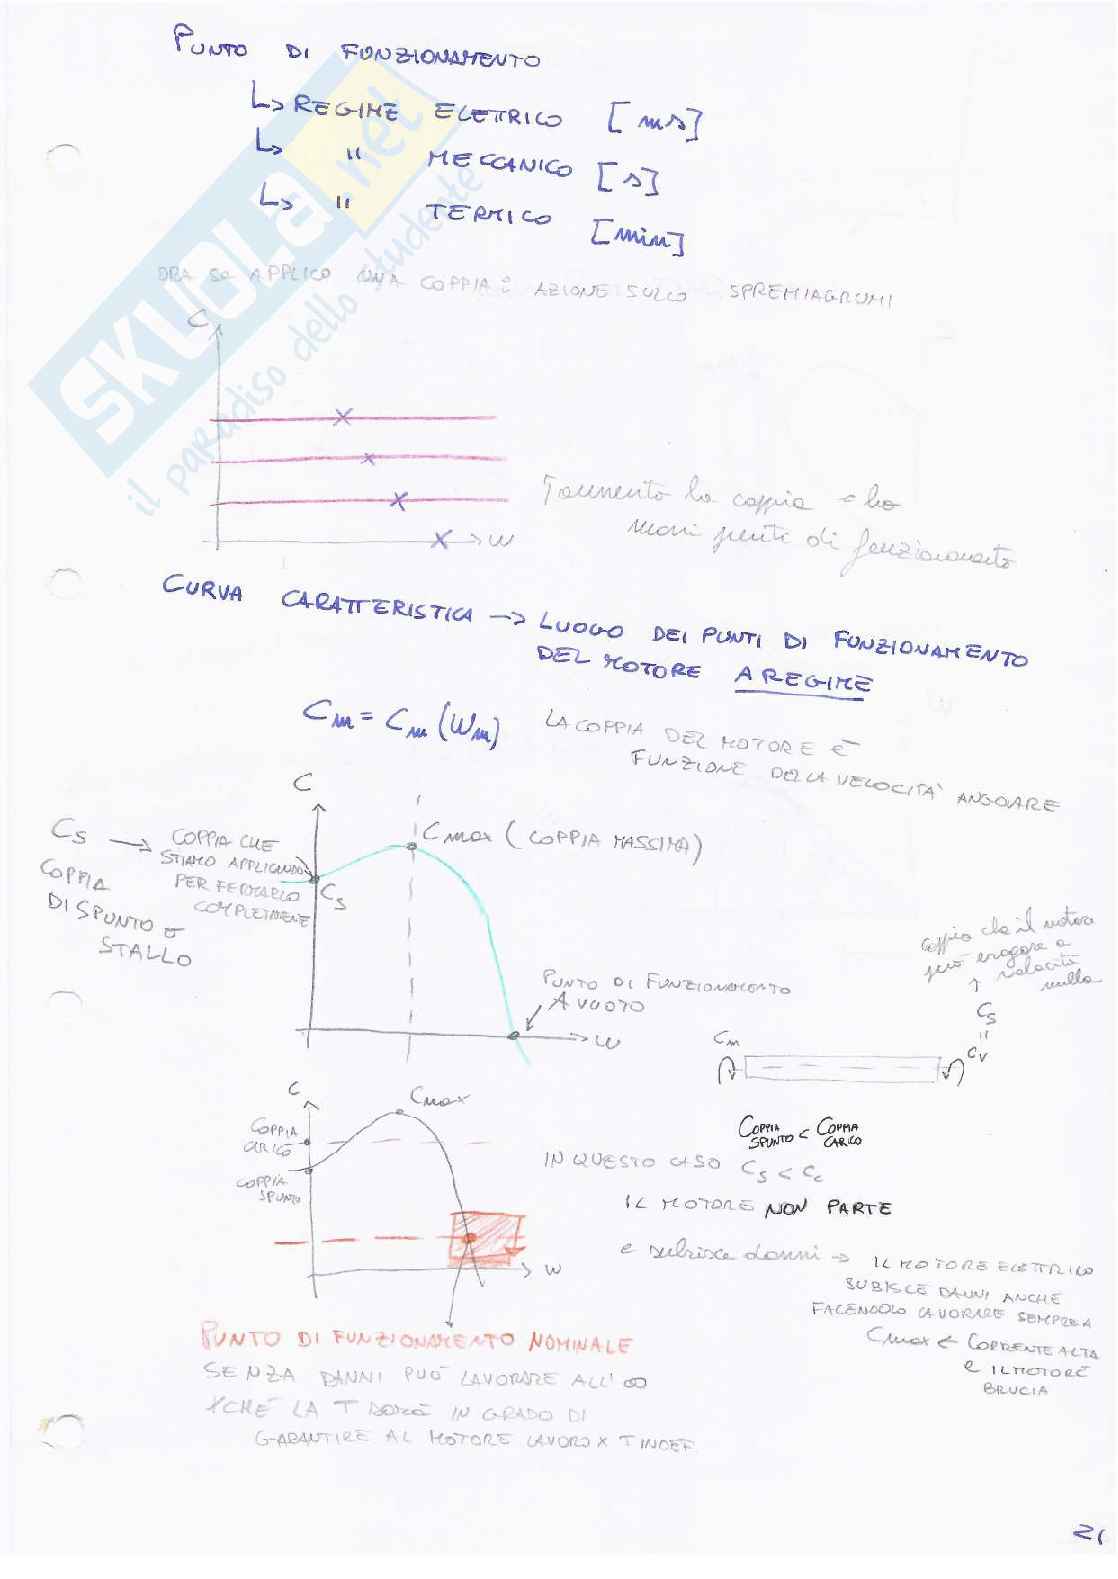 PUNTO DI FUNZIONAMENTO
↳ REGIME ELETTRICO [ms]
↳ " MECCANICO [s]
↳ " TERMICO [min]
ORA SE APPLICO UNA COPPIA: AZIONE SULLO SPREMIAGRUMI
SKUOLA.net
il paradiso dello studente
C
W
aumento la coppia e ho
nuovi punti di funzionamento
CURVA CARATTERISTICA → LUOGO DEI PUNTI DI FUNZIONAMENTO
DEL MOTORE A REGIME
Cm = Cm (Wm)
LA COPPIA DEL MOTORE È
FUNZIONE DELLA VELOCITÀ ANGOARE
C
Cmax (COPPIA MASSIMA)
CS → COPPIA CHE
STIAMO APPLICANDO
PER FERMARLO
COMPLETAMENE
COPPIA
DI SPUNTO o
STALLO
CS
PUNTO DI FUNZIONAMENTO
A VUOTO
W
coppia che il motore
può erogare a
velocità
nulla
↑
CS
"
Cm
CV
C
Cmax
COPPIA
CARICO
COPPIA
SPUNTO
W
COPPIA SPUNTO < COPPIA CARICO
IN QUESTO CASO CS < Cc
IL MOTORE NON PARTE
e subisce danni → IL MOTORE ELETTRICO
SUBISCE DANNI ANCHE
FACENDOLO LAVORARE SEMPRE A
Cmax ← CORRENTE ALTA
E IL MOTORE
BRUCIA
PUNTO DI FUNZIONAMENTO NOMINALE
SENZA DANNI PUÒ LAVORARE ALL'∞
XCHÈ LA T SARÀ IN GRADO DI
GARANTIRE AL MOTORE LAVORO X T INDEF
21